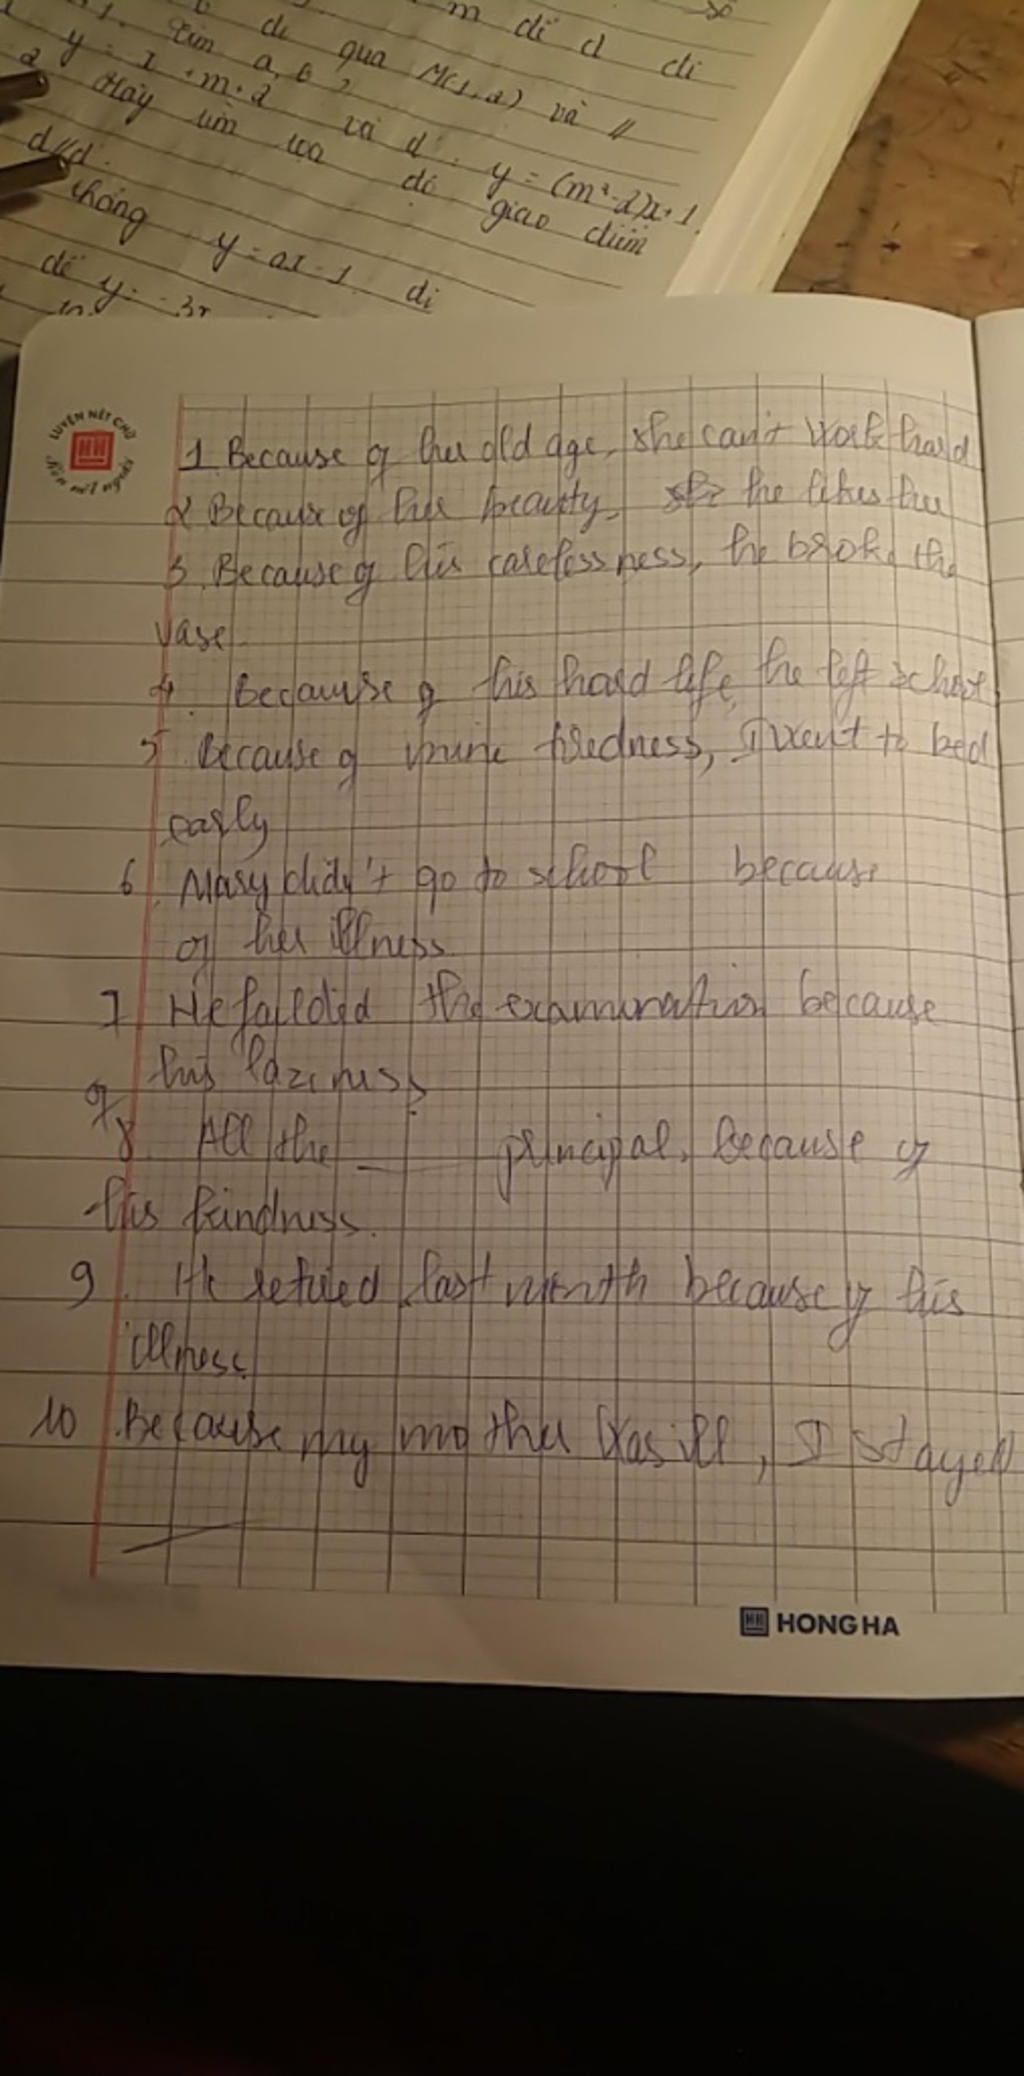 m để d đi
đi qua M(1,2) và //
Tìm a, b?
y = x + m + 2 và d': y = (m² - 2)x + 1
2 Hãy tìm toạ độ giao điểm
d//d'.
thẳng y = ax - 1 đi
để y = -3x
LUYỆN NÉT CHỮ
Rèn nết người
1 Because of her old age, she can't work hard
2 Because of her beauty, he likes her
3. Because of his carelessness, he broke the
vase
4. Because of his hard life, he left school
5 Because of mine tiredness, I went to bed
early
6. Mary didn't go to school because
of her illness
7 He failded the examination because
his laziness
8. All the — principal, because of
his kindness.
9. He retired last month because of his
illness
10 Because my mother was ill, I stayed
HH HONG HA